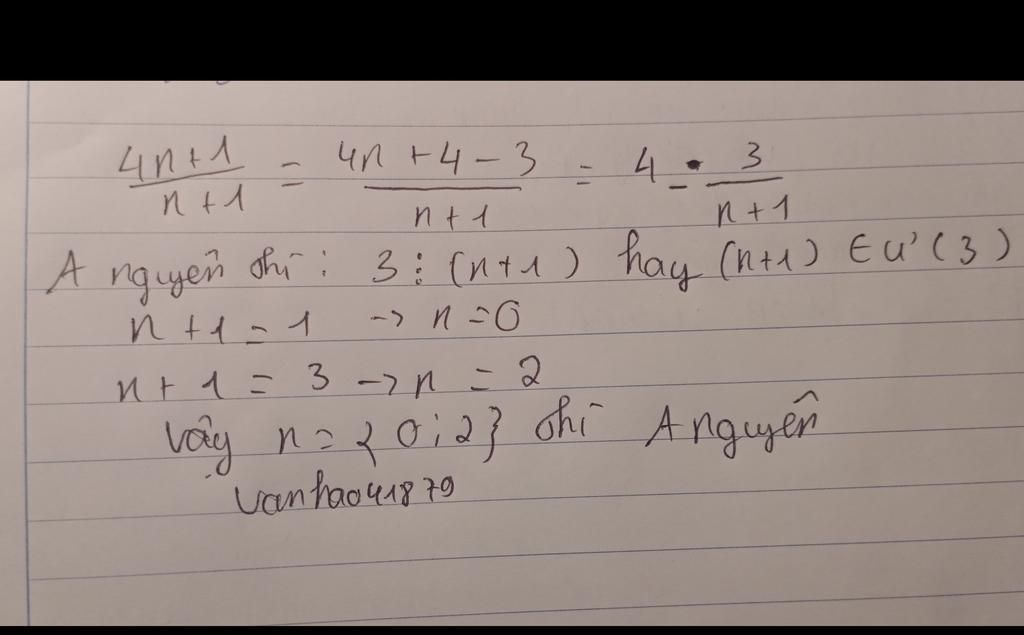 4n+1/n+1 = 4n+4-3/n+1 = 4 - 3/n+1
A nguyên thì: 3 ⋮ (n+1) hay (n+1) ∈ Ư(3)
n+1=1 -> n=0
n+1=3 -> n=2
Vậy n={0;2} thì A nguyên
vanhao41879